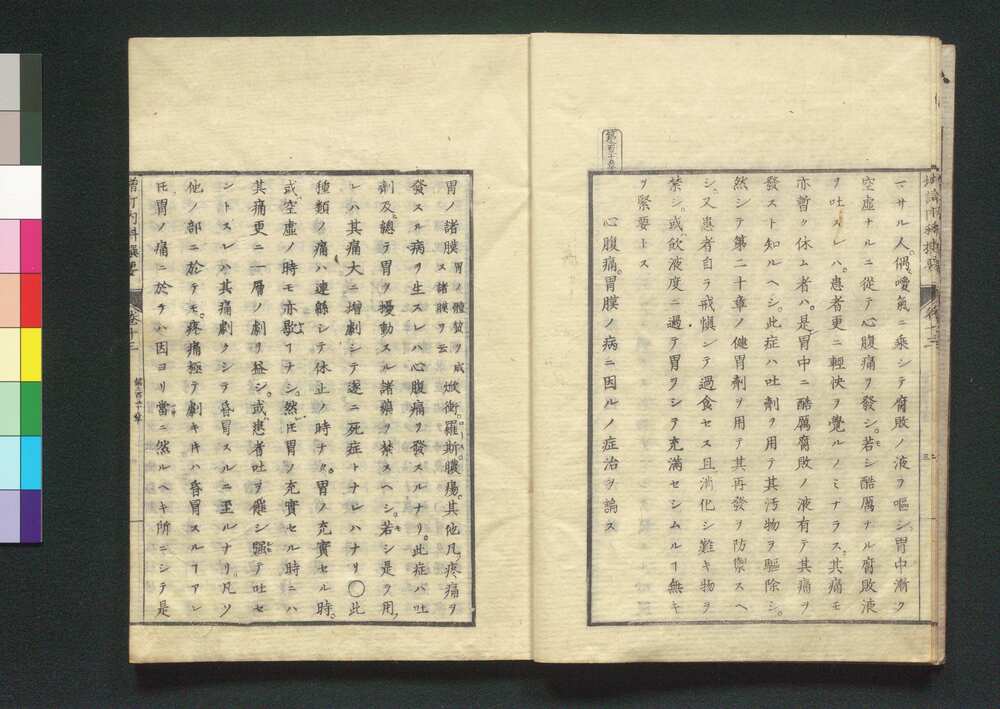 マサル人。偶噯氣ニ乘シテ腐敗ノ液ヲ嘔シ。胃中漸ク
空虛ナルニ從テ心腹痛ヲ發ス。若シ酷厲ナル腐敗液
ヲ吐スレハ。患者更ニ輕快ヲ覺ルノミナラス。其痛モ
亦暫ク休ム者ハ。是胃中ニ酷厲腐敗ノ液有テ其痛ヲ
發スト知ルヘシ。此症ハ吐劑ヲ用テ其汚物ヲ驅除シ。
然シテ第二十章ノ健胃劑ヲ用テ其再發ヲ防禦スヘ
シ。又患者自ラ戒愼シテ過食セス且消化シ難キ物ヲ
禁シ。或飲液度ニ過テ胃ヲシテ充滿セシムルヿ無キ
ヲ緊要トス
心腹痛。胃膜ノ病ニ因ルノ症治ヲ論ス
胃ノ諸膜 胃ノ體質ヲ成ス諸膜ヲ云 焮衝。羅斯。膿瘍。其他凡疼痛ヲ
發スル病ヲ生スレハ心腹痛ヲ發スルナリ。此症ハ吐
劑及總テ胃ヲ擾動スル諸藥ヲ禁スヘシ。若シ是ヲ用
レハ其痛大ニ增劇シテ遂ニ死症トナレハナリ〇此
種類ノ痛ハ連緜シテ休止ノ時ナク。胃ノ充實セル時。
或空虛ノ時モ亦歇ヿナシ。然𪜈胃ノ充實セル時ニハ
其痛更ニ一層ノ劇ヲ益シ。或患者吐ヲ催シ強テ吐セ
ントスレハ其痛劇クシテ昏冒スルニ至ルナリ。凡ソ
他ノ部ニ於テモ。疼痛極テ劇キキハ昏冒スルヿアレ
𪜈胃ノ痛ニ於テハ因ヨリ當ニ然ルヘキ所ニシテ是
增訂內科撰要
卷十二